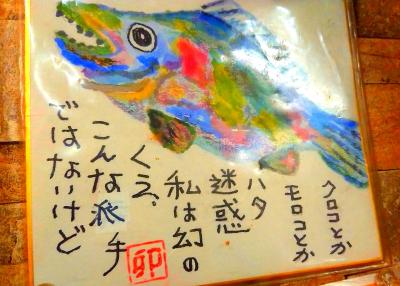 クロコとか
モロコとか
ハタ
迷惑
私は幻の
くえ、
こんな派手
ではないけど
卯